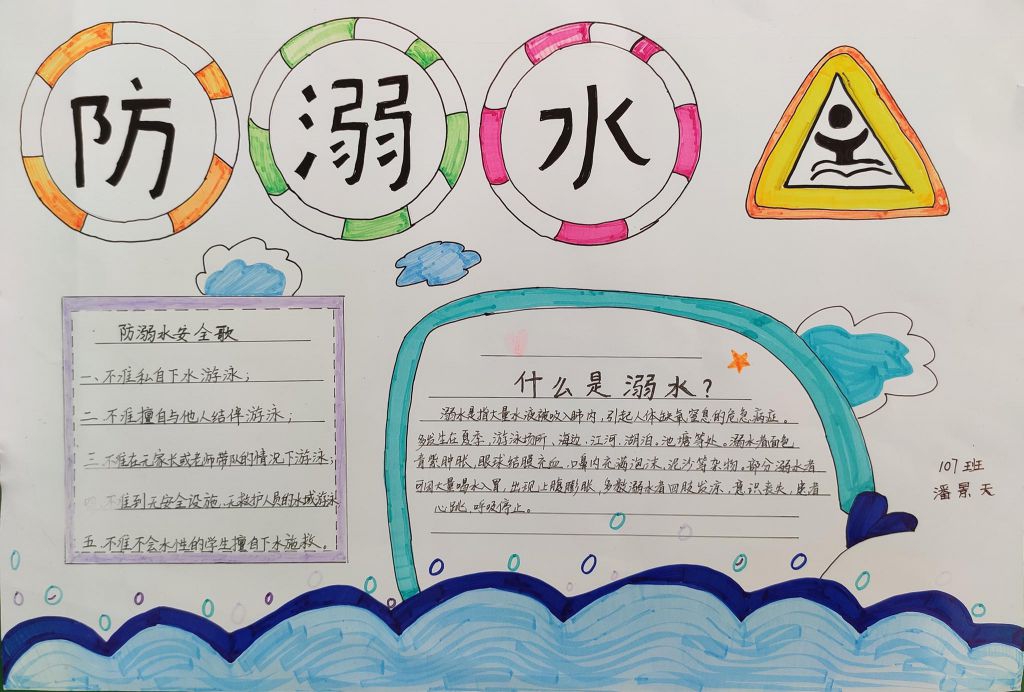 防溺水
防溺水安全歌
一、不准私自下水游泳；
二、不准擅自与他人结伴游泳；
三、不准在无家长或老师带队的情况下游泳；
四、不准到无安全设施、无救护人员的水域游泳
五、不准不会水性的学生擅自下水施救。
什么是溺水？
溺水是指大量水液被吸入肺内，引起人体缺氧窒息的危急病症。
多发生在夏季，游泳场所、海边、江河、湖泊、池塘等处。溺水者面色
青紫肿胀，眼球结膜充血，口鼻内充满泡沫、泥沙等杂物。部分溺水者
可因大量喝水入胃，出现上腹膨胀，多数溺水者四肢发凉，意识丧失，患者
心跳、呼吸停止。
107班
潘景天